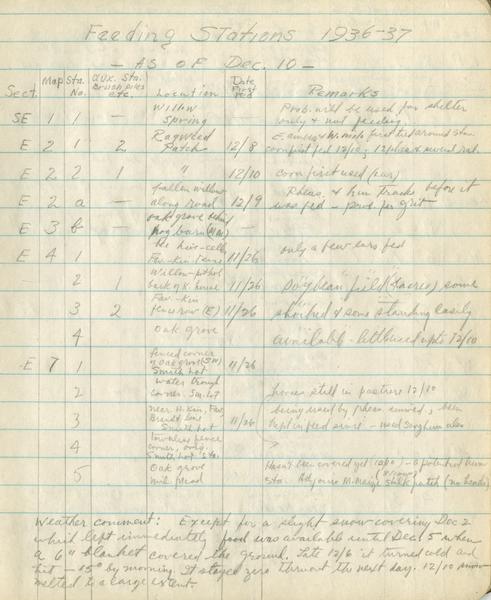 Feeding Stations 1936-37
- AS OF Dec. 10 -
Sect. Map Sta. No. aux. Sta. Brush piles etc. Location Date First Fed Remarks
SE 1 1 — Willow Spring Prob. will be used for shelter only & not feeding.
E 2 1 2 Ragweed Patch 12/8 corn first fed 12/10;
E 2 2 1 " 12/10 corn first used (ear)
E 2 a — fallen willow along road 12/9 Pheas. & Hun tracks before it was fed - prob. for grit
E 3 b — oak grove hog barn —
E 4 1 Fav-Kin fence 11/26 only a few ears fed
2 1 Willow-pothole back of K. house 11/26 Soybean field (5 acres) some
3 2 Fav-Kin fencerow (E) 11/26 shocked & some standing easily
4 oak grove available - little used up to 12/10
E 7 1 fenced corner Oak grove (SW) Smith lot 11/26
2 water trough corner Sm. lot horses still in pasture 12/10
3 near H. Kin, Fav. Smith lot 11/26 being used by pheas. used Sorghum also
4 fence corner, orig. Smith lot Sta.
5 Oak grove Hasn't been covered yet (12/10) - a potential Hun Sta. Adjoins patch (no heads)
Weather comment: Except for a slight snow covering Dec 2
which left immediately food was available until Dec 5 when
a 6" blanket covered the ground. Late 12/6 it turned cold and
hit -15° by morning. It stayed zero thruout the next day. 12/10 snow
melted to a large extent.